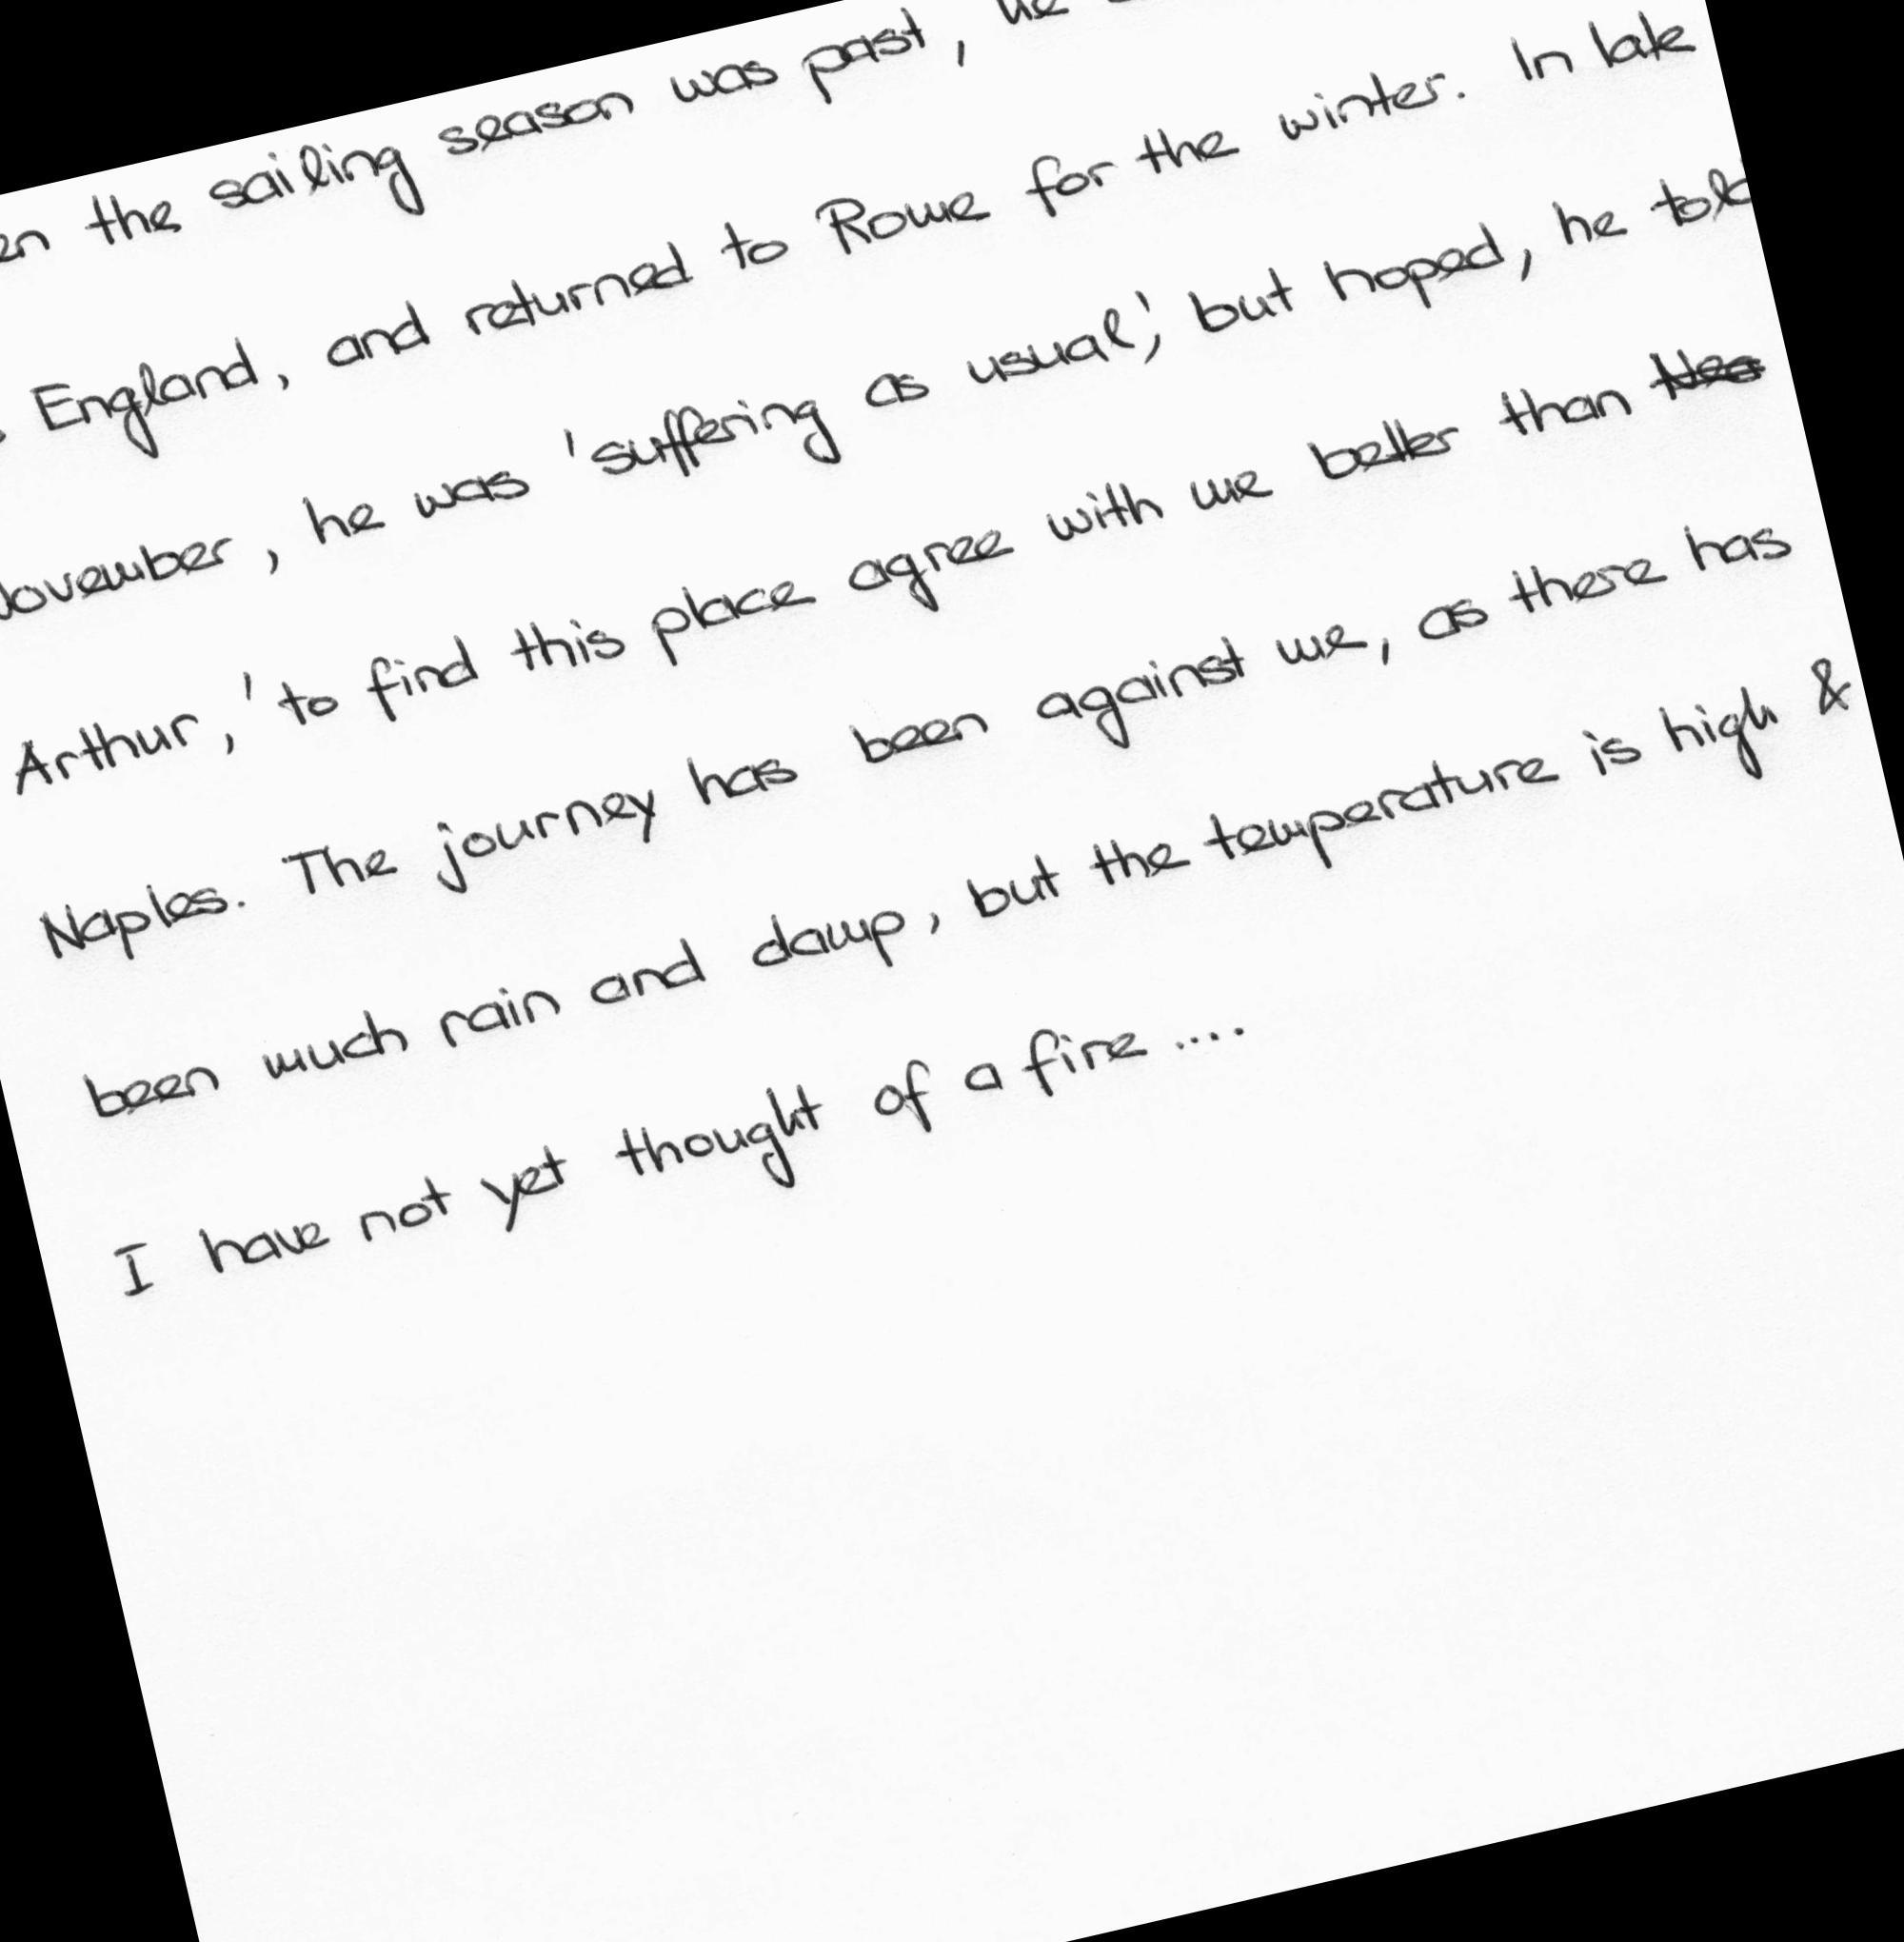 the sailing season was past, he
England, and returned to Rome for the winter. In late
November, he was 'suffering as usual', but hoped, he told
Arthur, 'to find this place agree with me better than
Naples. The journey has been against me, as there has
been much rain and damp, but the temperature is high &
I have not yet thought of a fire ....